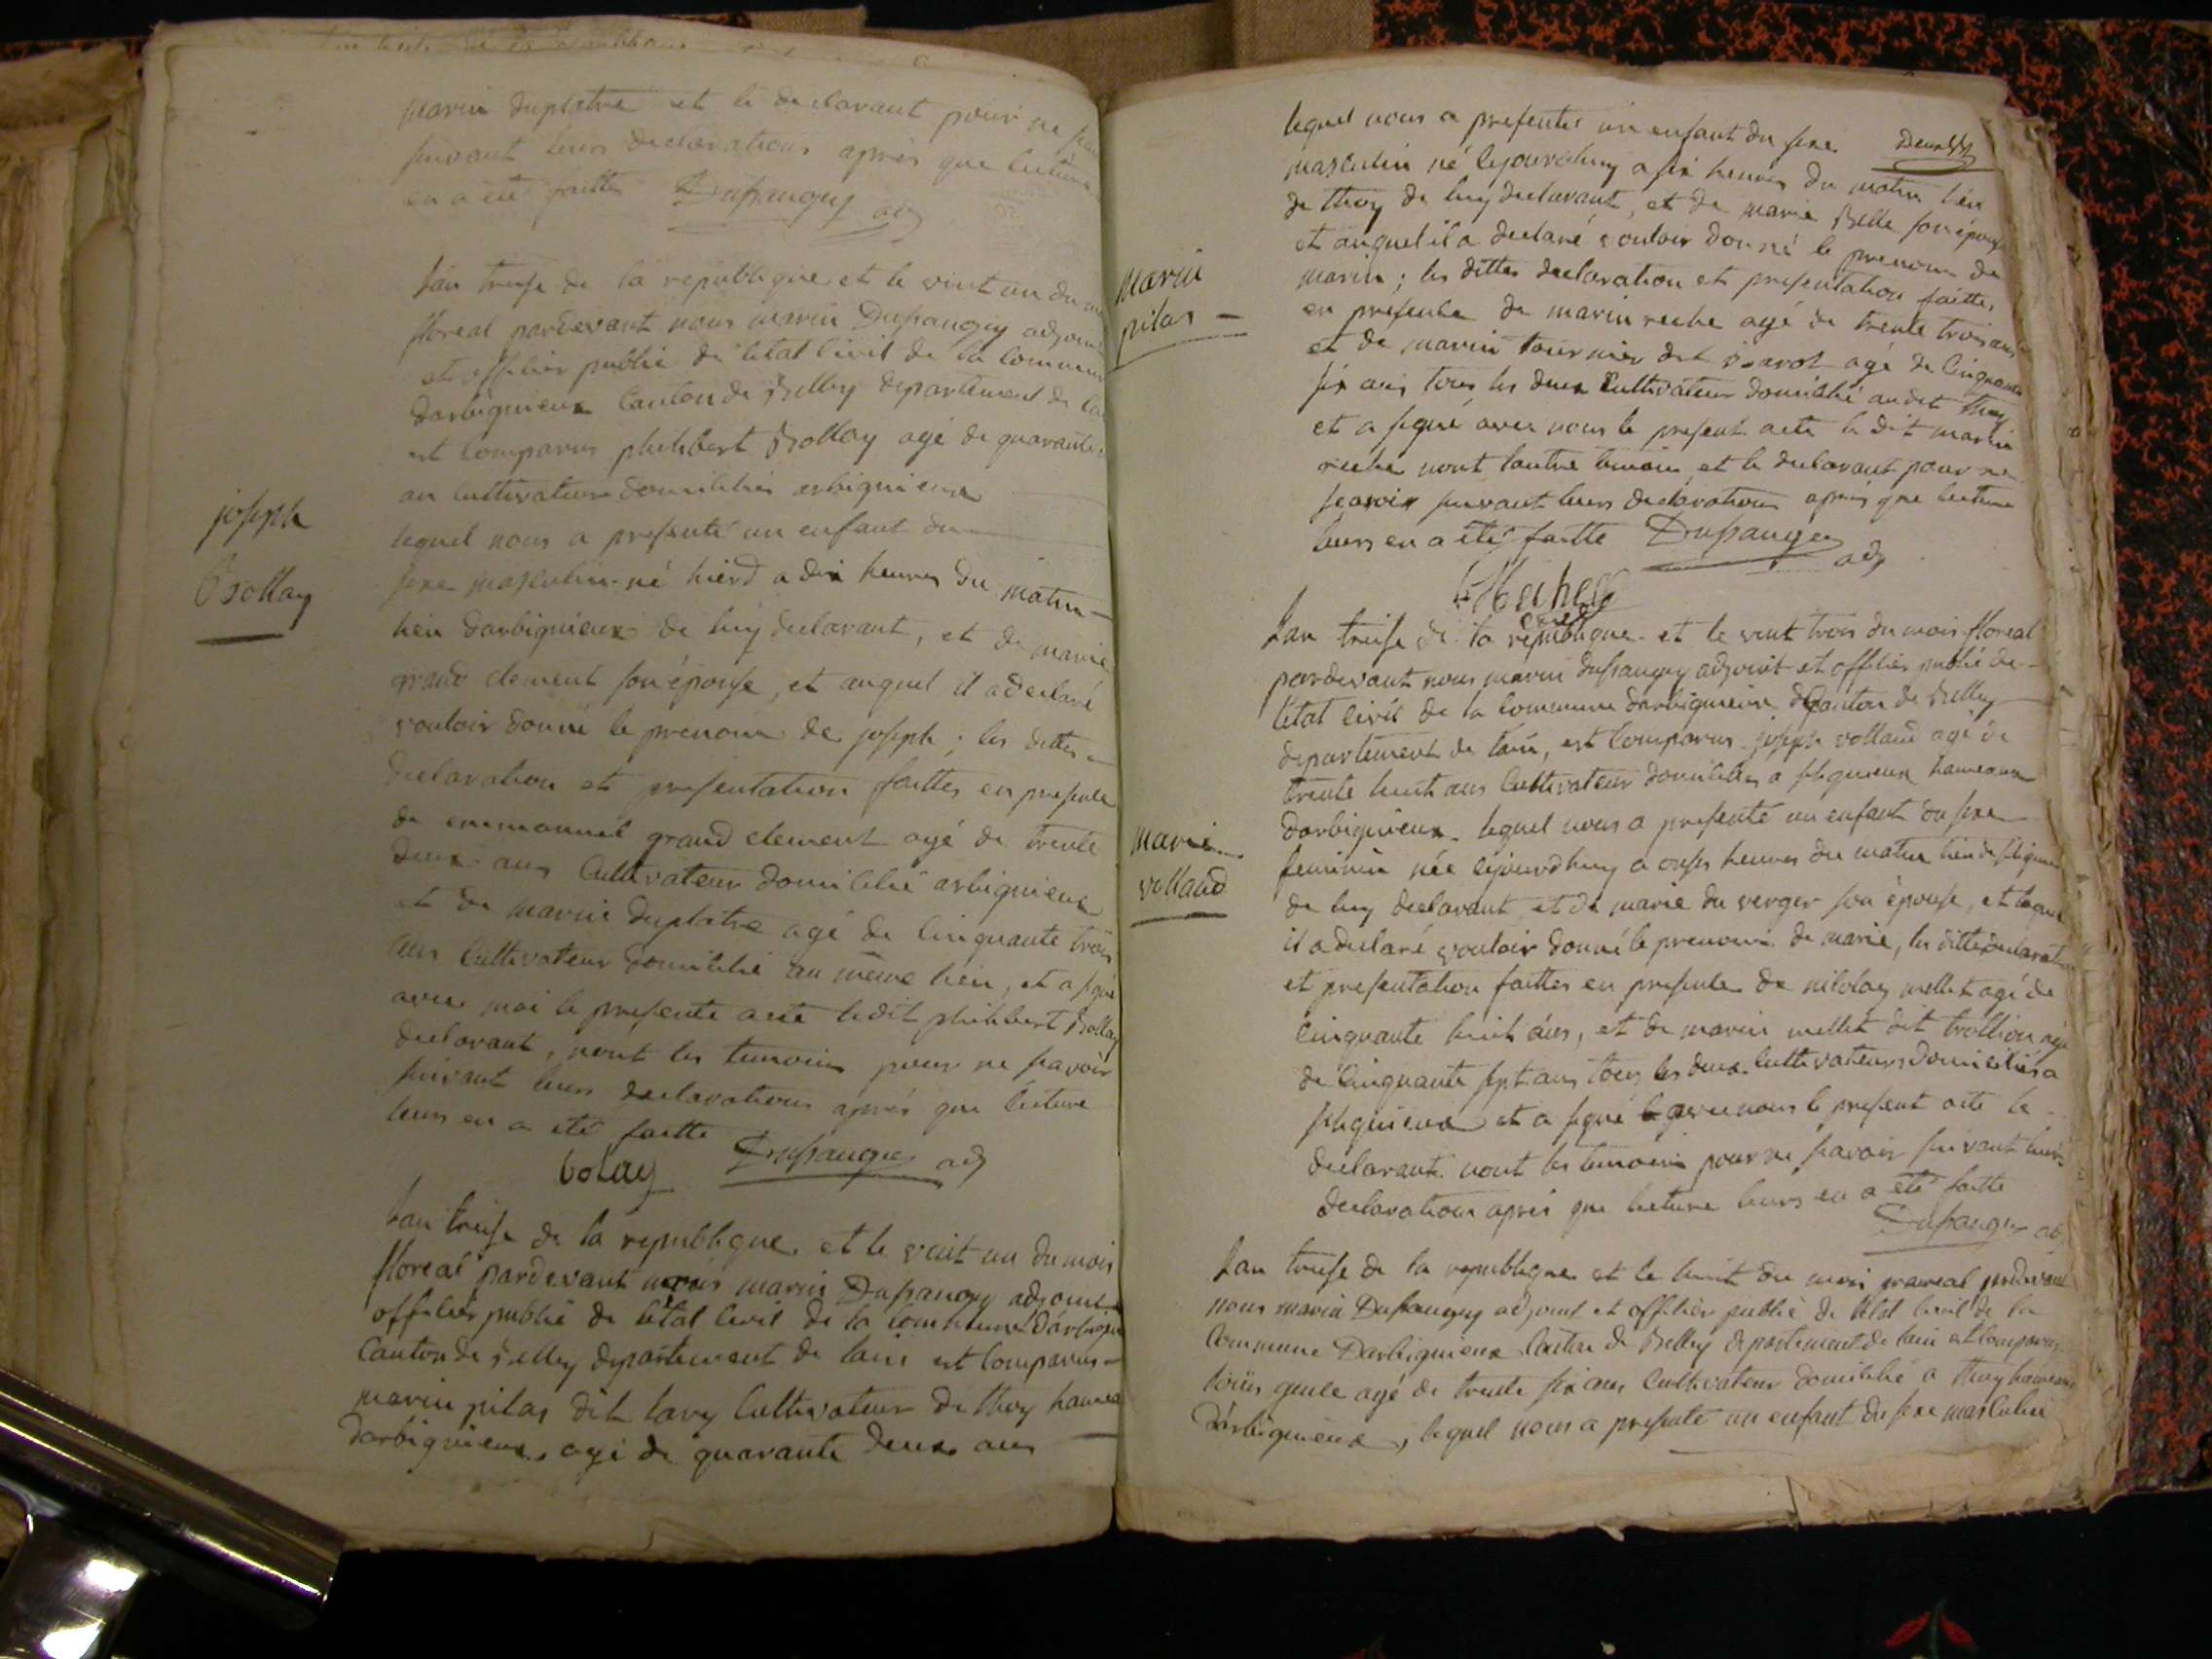 marin duplatre et le declarant pour ne
suivant leurs declarations après que lecture
en a été faitte Dupaugey adj
joseph
bollay
l'an treise de la republique et le vint un du
floreal pardevant nous marin Dupaugey adjoint
et offilier public de l'etat livil de la Commune
darbignieux Canton de Belley departement de l'ai
est Comparus philibert Bollay agé de quarante
an Cultivateur domilcilié arbignieux
lequel nous a presenté un enfant du
sexe masculin né hierd a dix heures du matin
lieu darbignieux de luy declarant, et de marie
grand clement son épouse, et auquel il a declaré
vouloir donné le prenom de joseph ; les dittes
declaration et presentation faittes en presence
de emmanuel grand clement agé de trente
deux ans Cultivateur domicilié arbignieux
et de marin duplatre agé de Cinquante trois
ans Cultivateur domicilié au même lieu, et a signé
avec moi le presente acte ledit philibert Bollay
declarant, nont les temoins pour ne savoir
suivant leurs declarations après que lecture
leurs en a été faitte
bolay Dupaugey adj
l'an treise de la republique et le vint un du mois
floreal pardevant nous marin Dupaugey adjoint
offilier public de l'état livil de la Commune Darbignieu
Canton de Belley departement de lain est Comparus
marin pilas dit lavy Cultivateur de thoy hamea
darbignieux, agé de quarante deux ans
marin
pilas
lequel nous a presenté un enfant du sexe
masculin né lejourdhuy a six heures du matin lieu
de thoy de luy declarant, et de marie Belle son épouse
et auquel il a declaré vouloir donné le prenom de
marin ; les dittes declaration et presentation faittes
en presence de marin reche agé de trente trois ans
et de marin tournier dit agé de Cinquante
six ans tous les deux Cultivateur domicilié audit thoy
et a signé avec nous le present acte le dit marin
reche nont lautre temoin et le declarant pour ne
scavoir suivant leurs declaration après que lecture
leurs en a été faitte Dupaugey
adj
l'an treise de la republique et le vint trois du mois floreal
pardevant nous marin dupaugey adjoint et offilier public de
l'état livil de la Commune darbignieux Canton de Belley
departement de l'ain, est Comparus joseph volland agé de
trente huit ans Cultivateur domicilies a sligneux hameaux
darbignieux lequel nous a presenté un enfant du sexe
marie
volland
feminin née lejourdhuy a onses heures du matin lieu de
de luy declarant et de marie du verger son épouse, et
il a declaré vouloir donné le prenom de marie, les ditte declaration
et presentation faittes en presence de nicolas mellet agé de
cinquante huit ans, et de marin mellet dit trollion agé
de Cinquante sept ans tous les deux Cultivateurs domiciliés a
et a signé avec nous le present acte le
declarant nont les temoins pour ne savoir suivant leurs
declaration après que lecture leurs en a été faitte
Dupaugey adj
l'an treise de la republique et le huit du mois prareal pardevant
nous marin Dupaugey adjoint et offitier public de l'état livil de la
Commune Darbignieux Canton de Belley departement de lain est Comparus
loüis agé de trente six ans Cultivateur domicilié a thoy hameaux
darbignieux, lequel nous a presenté un enfant du sexe masculin